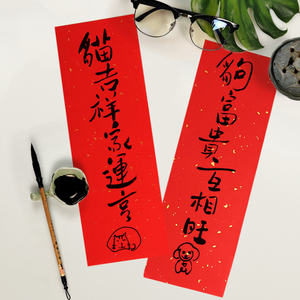 狗富貴互相旺
貓吉祥家運亨